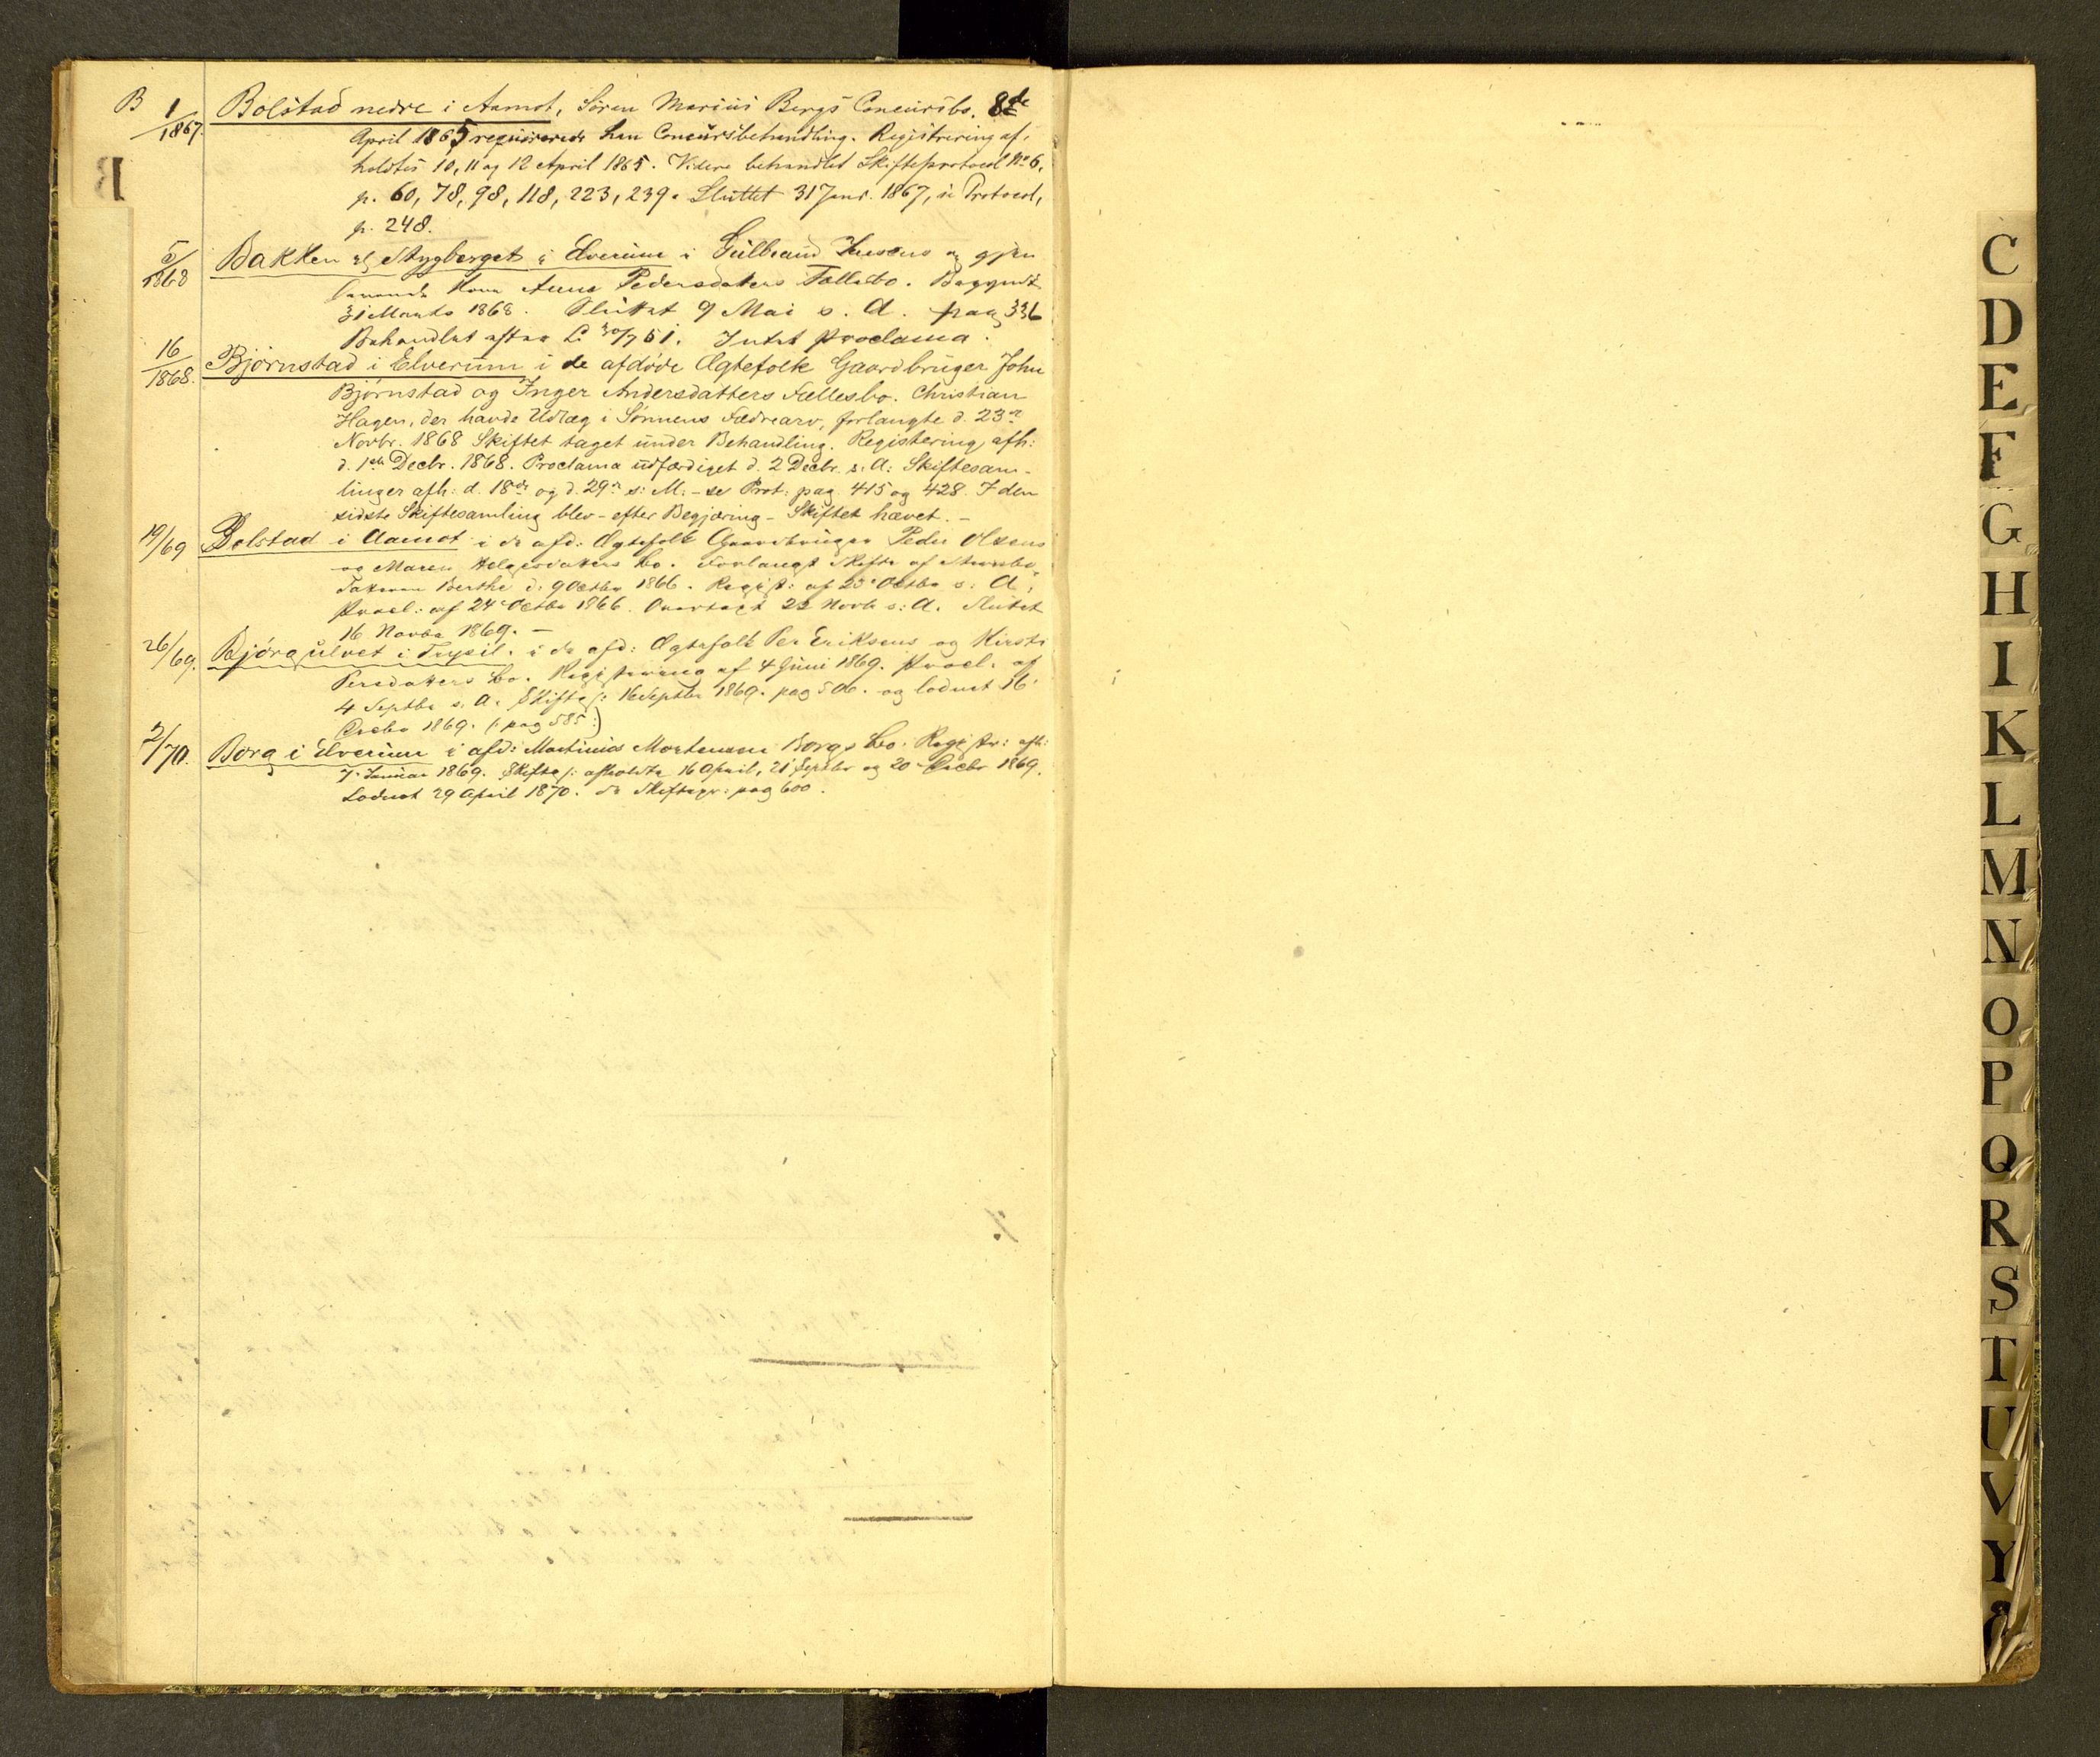 B 1/1867. Bolstad nedre i Aamot, Søren Marius Bergs Concursbo. 8de
April 1865 requirerede han Concursbehandling. Registrering af-
holdtes 10, 11 og 12 April 1865. Videre behandlet Skifteprotocol No 6,
p. 60, 78, 98, 118, 223, 239. Sluttet 31 Janr. 1867, se Protocol,
p. 248.
5/1868 Bakken Stygberget i Elverum i Gulbrand og gjen
Kone Anne Pedersdatters Fællesbo. Begyndt
31 Marts 1868. Sluttet 9 Mai s. A. pag 336
Behandlet efter L. 30/7 51. Intet proclama.
16/1868. Bjørnstad i Elverum i de afdøde Ægtefolk Gaardbruger John
Bjørnstad og Inger Andersdatters Fællesbo. Christian
Hagen, der havde Udlæg i Sønnens Fædrearv, forlangte d. 23de
Novbr. 1868 Skiftet taget under Behandling. Registering afh:
d. 1ste Decbr. 1868. Proclama udfærdiget d. 2 Decbr. s. A: Skiftesam-
linger afh: d. 18de og d. 29de s: M: - se Prot: pag 415 og 428. I den
sidste Skiftesamling blev - efter Begjæring - Skiftet hævet. -
19/69 Bolstad i Aamot i de afd: Ægtefolk Gaardbruger Peder Olsens
og Maren Helgesdatters bo. Forlangt Skifte af
Berthe d. 9 Octbr 1866. Regist: af 23 Octbr s: A:
Procl: af 24 Octbr 1866. 22 Novb s: A. Sluttet
16 Novbr 1869. -
26/69. Bjørgulvet i Trysil. i de afd: Ægtefolk Per Eriksens og Kirsti
Persdatters bo. Registrering af 4 Juni 1869. Procl. af
4 Septbr s. A. Skifte/: 16 Septbr 1869. pag 506. og sluttet 16
Decbr 1869. (: pag 585 :)
2/70. Borg i Elverum i afd: Martinus Mortensen Borgs bo. Registr: afh:
7 Januar 1869. Skifte/: afholdte 16 April, 21 Septbr og 20 Decbr 1869.
Sluttet 29 April 1870. se Skiftepr: pag 600.
B
C
D
E
F
G
H
I
K
L
M
N
O
P
Q
R
S
T
U
V
Y